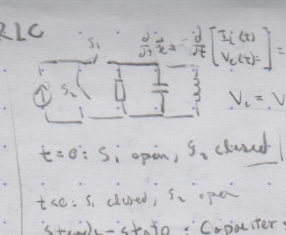 RLC
S₁
d/dt x = d/dt [I_L(t) V_C(t)] =
S₂
V_c = V
t=0: S₁ open, S₂ closed
t<0: S₁ closed, S₂ open
steady-state: Capacitor